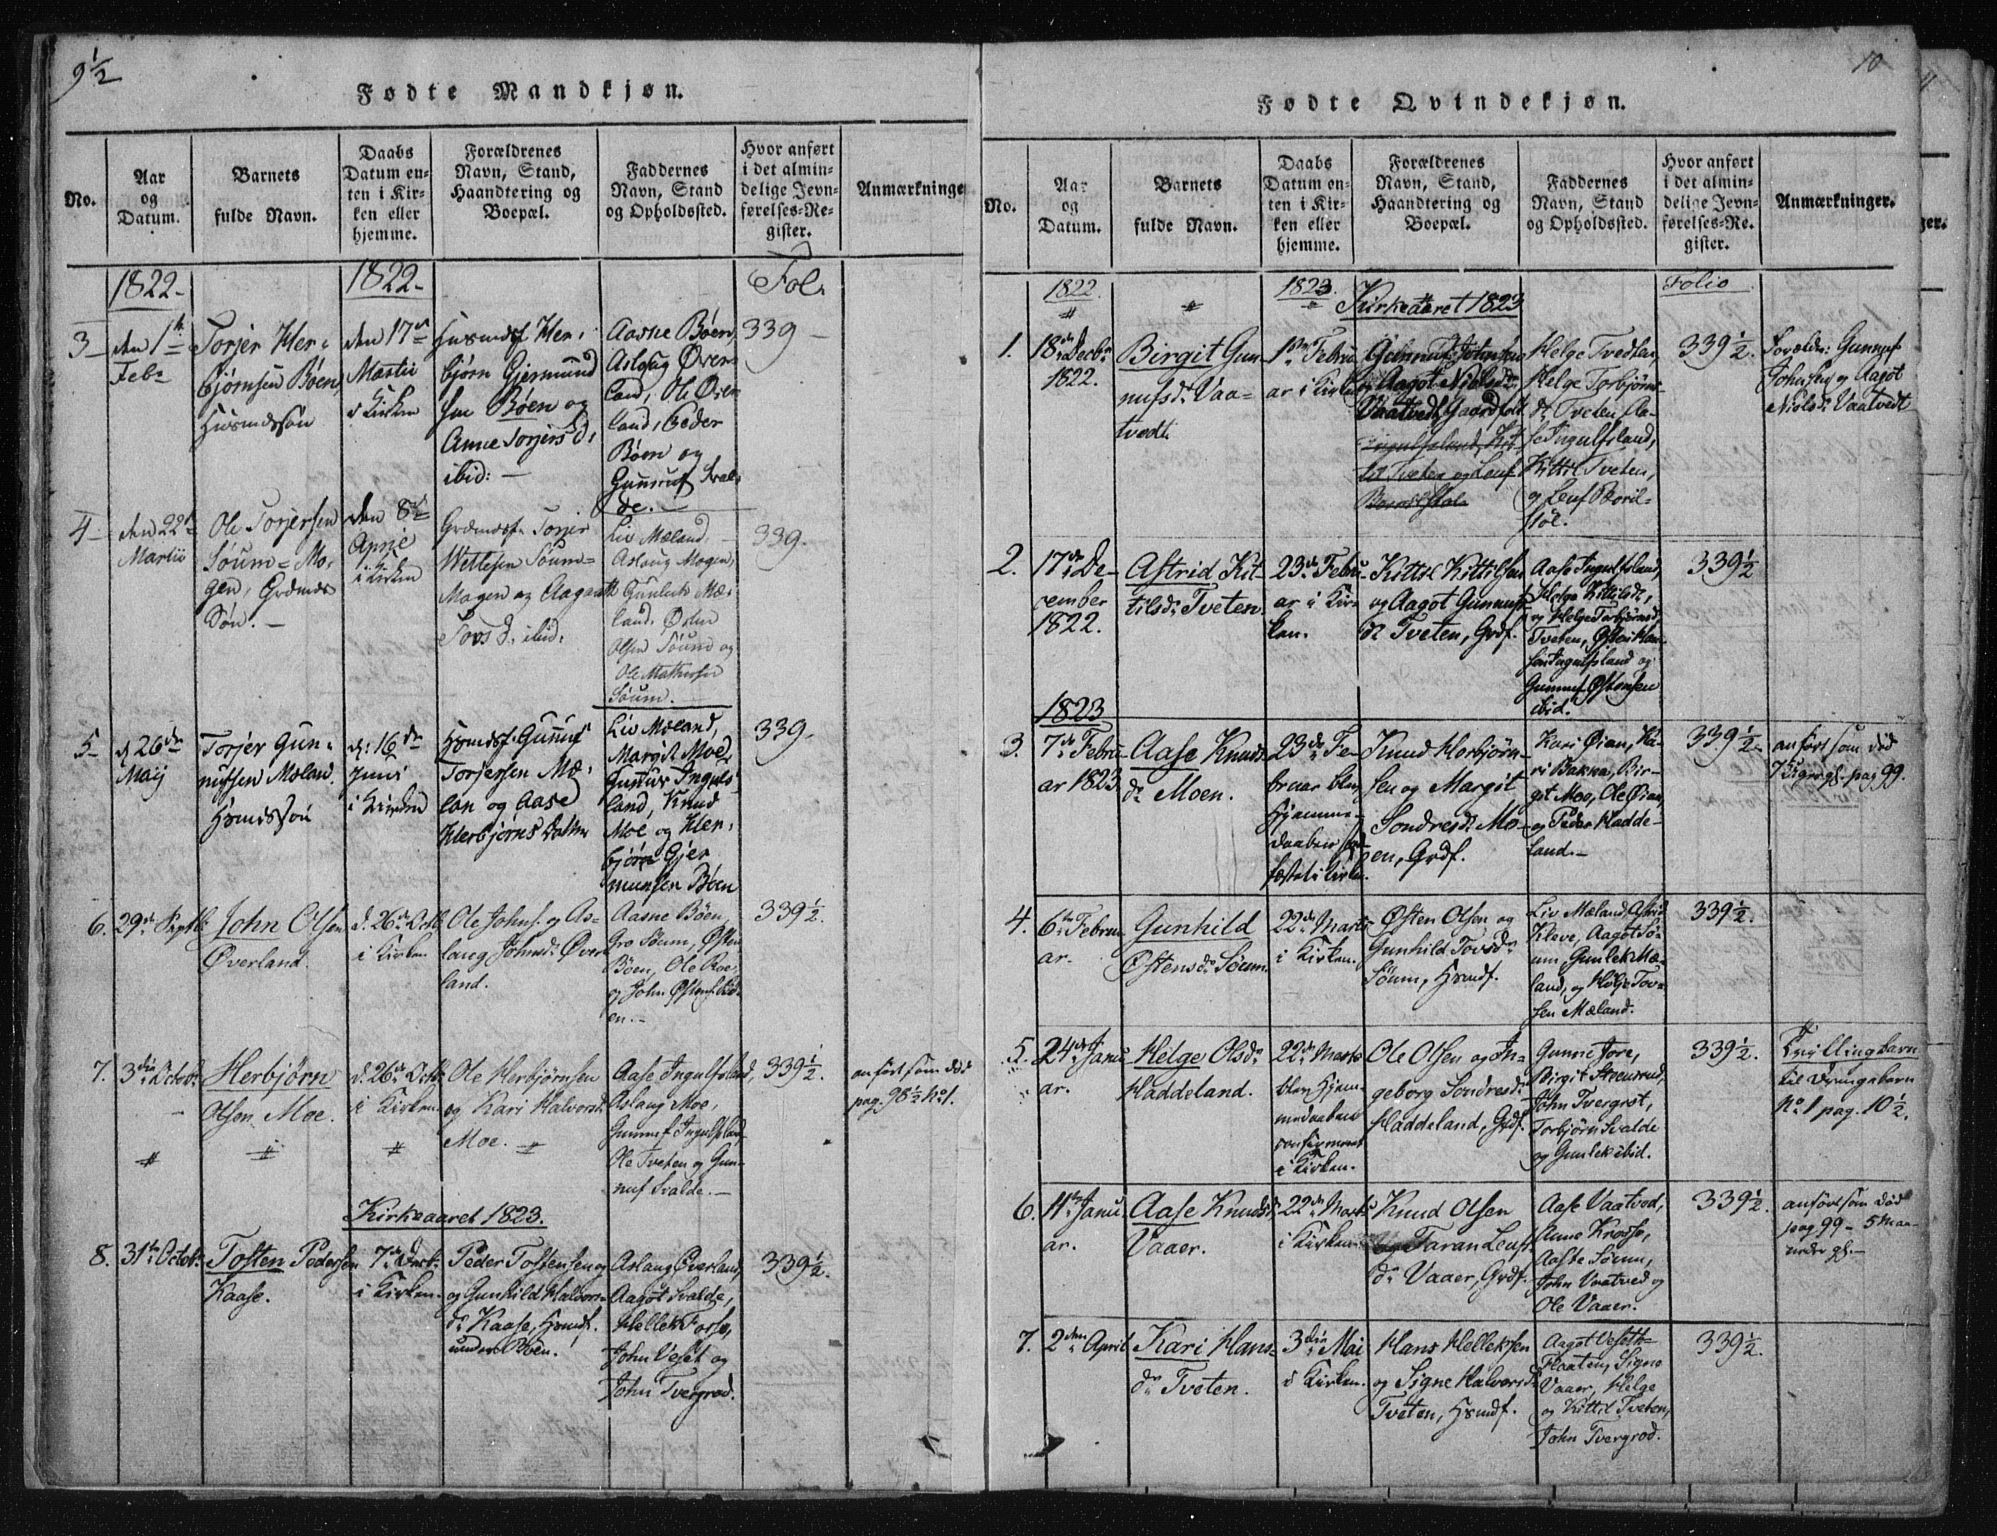 9½
Fødte Mandkjøn.
No.
Aar
og
Datum.
Barnets
fulde Navn.
Daabs
Datum en-
ten i Kir-
ken eller
hjemme.
Forældrenes
Navn, Stand,
Haandtering og
Boepæl.
Faddernes
Navn, Stand
og Opholdssted.
Hvor anført
i det almin-
delige Jevn-
førelses-Re-
gister.
Anmærkninge
1822.
1822.
Fol.
3
den 1te
Feb
Torjer Her-
bjørnsen Bøen,
Husmdssøn
den 17de
Martii
i Kirken
Husmdsf Her-
bjørn Gjermund
sen Bøen og
Anne Torjersd:
ibid:
Aasne Bøen,
Aslaug Øver-
land, Ole Över
land, Peder
Bøen og
Gunnuf Sval-
de.
339
4
den 22de
Martii
Ole Torjersen
Søum-Mo-
gen, Grdmds
Søn.
den 8de
Aprie
i Kirken
Grdmdsf Torjer
Wetlesen Søum-
Mogen og Aagaat
Tovsd. ibid.
Liv Mæland,
Aslaug Mogen,
Gunlech Mæ-
land. Østen
Olsen Søum og
Ole Mathisen
Søum.
339.
5
d. 26de
Maij
Torjer Gun-
nufsen Mæland
Hsmdssøn
d. 16de
Juni
i Kirken
Hsmdsf. Gunnuf
Torjersen Mæ-
lan og Aase
Herbjørns Datter
Liv Mæland,
Margit Moe,
Gunnuf Inguls-
land, Knud
Moe og Her-
bjørn Gjer
munsen Bøen
339.
6.
29de Septb:
John Olsen
Øverland.
d. 26de Octb
i Kirken
Ole Johnf. og As-
laug Johnsd. Över
land.
Aasne Bøen,
Gro Søum, Østen
Bøen, Ole Roe,
og John Østensf.
en.
339½.
7.
3die Octob:
Herbjørn
Olsen Moe.
d. 26de Octb.
i Kirken.
Ole Herbjørnsen
og Kari Halvorsd.
Moe.
Aase Ingulfsland,
Aslaug Moe,
Gunnuf Ingulfsland,
Ole Tveten og Gun-
nuf Svalde.
339½.
anført som död
pag. 98½ No 1.
Kirkeaaret 1823.
8.
31te Octobr
Tosten Pedersen
Kaase.
7de Decb.
i Kirken.
Peder Tostensen og
Gunhild Halvors-
dr Kaase, Hsmdf.
under Bøen.
Aslaug Överland,
Aagot Svalde,
Hellek Forse,
John Veset og
John Tvergrod.
339½.
10
Fødte Qvindekjøn.
No.
Aar
og
Datum.
Barnets
fulde Navn.
Daabs
Datum en-
ten i Kir-
ken eller
hjemme.
Forældrenes
Navn, Stand,
Haandtering og
Boepæl.
Faddernes
Navn, Stand
og Opholdssted.
Hvor anført
i det almin-
delige Jevn-
førelses-Re-
gister.
Anmærkninger.
1822.
1823.
Kirkeaaret 1823
Folio
1.
18de Decbr
1822.
Birgit Gun-
nufsd. Vaa-
tvedt.
1ste Febru
ar i Kirken
Gunnuf Johnsen
og Aagot Nielsdr
Vaatvedt, Gaardfolk
Ingulfsland, Kit-
til Tveten og Leuf
Helge Tvedten,
Helge Torbjørns
dr Tveten, Aa-
se Ingulfsland,
Kittil Tveten,
og Leuf Boril-
støl.
339½.
Forældr: Gunnuf
Johnsen og Aagot
Nielsdr Vaatvedt
2.
17de De-
cember
1822.
Astrid Kit-
tilsdr Tveten.
23de Febru
ar i Kir-
ken.
Kittil Kittilsen
og Aagot Gunnufs
dr Tveten, Grdf.
Aase Ingulfsland,
Helge Kittilsdr,
og Helge Torbjørnsd
Tveten, Østen Han
sen Ingulfsland og
Gunnuf Østensen
ibid.
339½
1823
3.
7de Febru
ar 1823
Aase Knuds
dr Moen.
23de Fe-
bruar blev
Hjemme-
daaben stad-
fæstet i Kirken.
Knud Herbjørn-
sen og Margit
Sondresdr Mo-
en, Grdf.
Kari Øian, Ka-
ri Bakka, Bir-
git Moe, Ole Øian,
og Peder Hadde-
land.
339½.
anført som död
pag 99.
4.
6te Febru
ar.
Gunhild
Østensdr Søum.
22de Marts
i Kirken.
Østen Olsen og
Gunhild Tovsdr
Søum, Hsmdf.
Liv Mæland, Astrid
Kleve, Aagot Sø-
um, Gunlek Mæ-
land, og Helge Tov-
sen Mæland.
339½.
5.
24de Janu
ar.
Helge Olsdr
Haddeland.
22de Marts
blev Hjem-
medaaben
confirmeret
i Kirken.
Ole Olsen og In-
geborg Sondresdr
Haddeland, Grdf.
Gunne Jore,
Birgit Steensrud,
John Tvergrot,
Torbjørn Svalde
og Gunlek ibid.
339½.
Tvillingbarn
til Drengebarn
No 1 pag. 10½.
6.
11te Janu
ar.
Aase Knudsd
Vaaer.
22de Marts
i Kirken.
Knud Olsen
og Taran Leufs
dr Vaaer, Grdf.
Aase Vaatvod,
Anne Krosso,
Aaste Søum,
John Vaatved og
Ole Vaaer.
339½.
anført som död
pag 99 - 5 Maa-
neder gl.
7.
2den April
Kari Hans-
dr Tveten.
3die Mai
i Kirken.
Hans Helleksen
og Signe Halvorsd.
Tveten, Hsmdf.
Aagot Veseth-
Flaaten, Signe
Vaaer, Helge
og Kittil Tveten,
John Tvergrod.
339½.